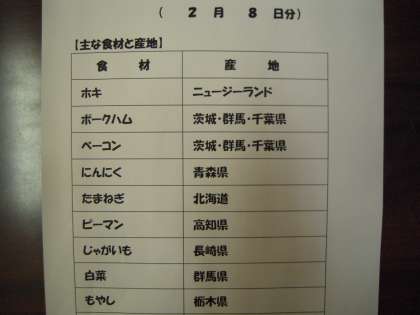 ( 2 月 8 日分)
【主な食材と産地】
食 材 産 地
ホキ ニュージーランド
ポークハム 茨城・群馬・千葉県
ベーコン 茨城・群馬・千葉県
にんにく 青森県
たまねぎ 北海道
ピーマン 高知県
じゃがいも 長崎県
白菜 群馬県
もやし 栃木県